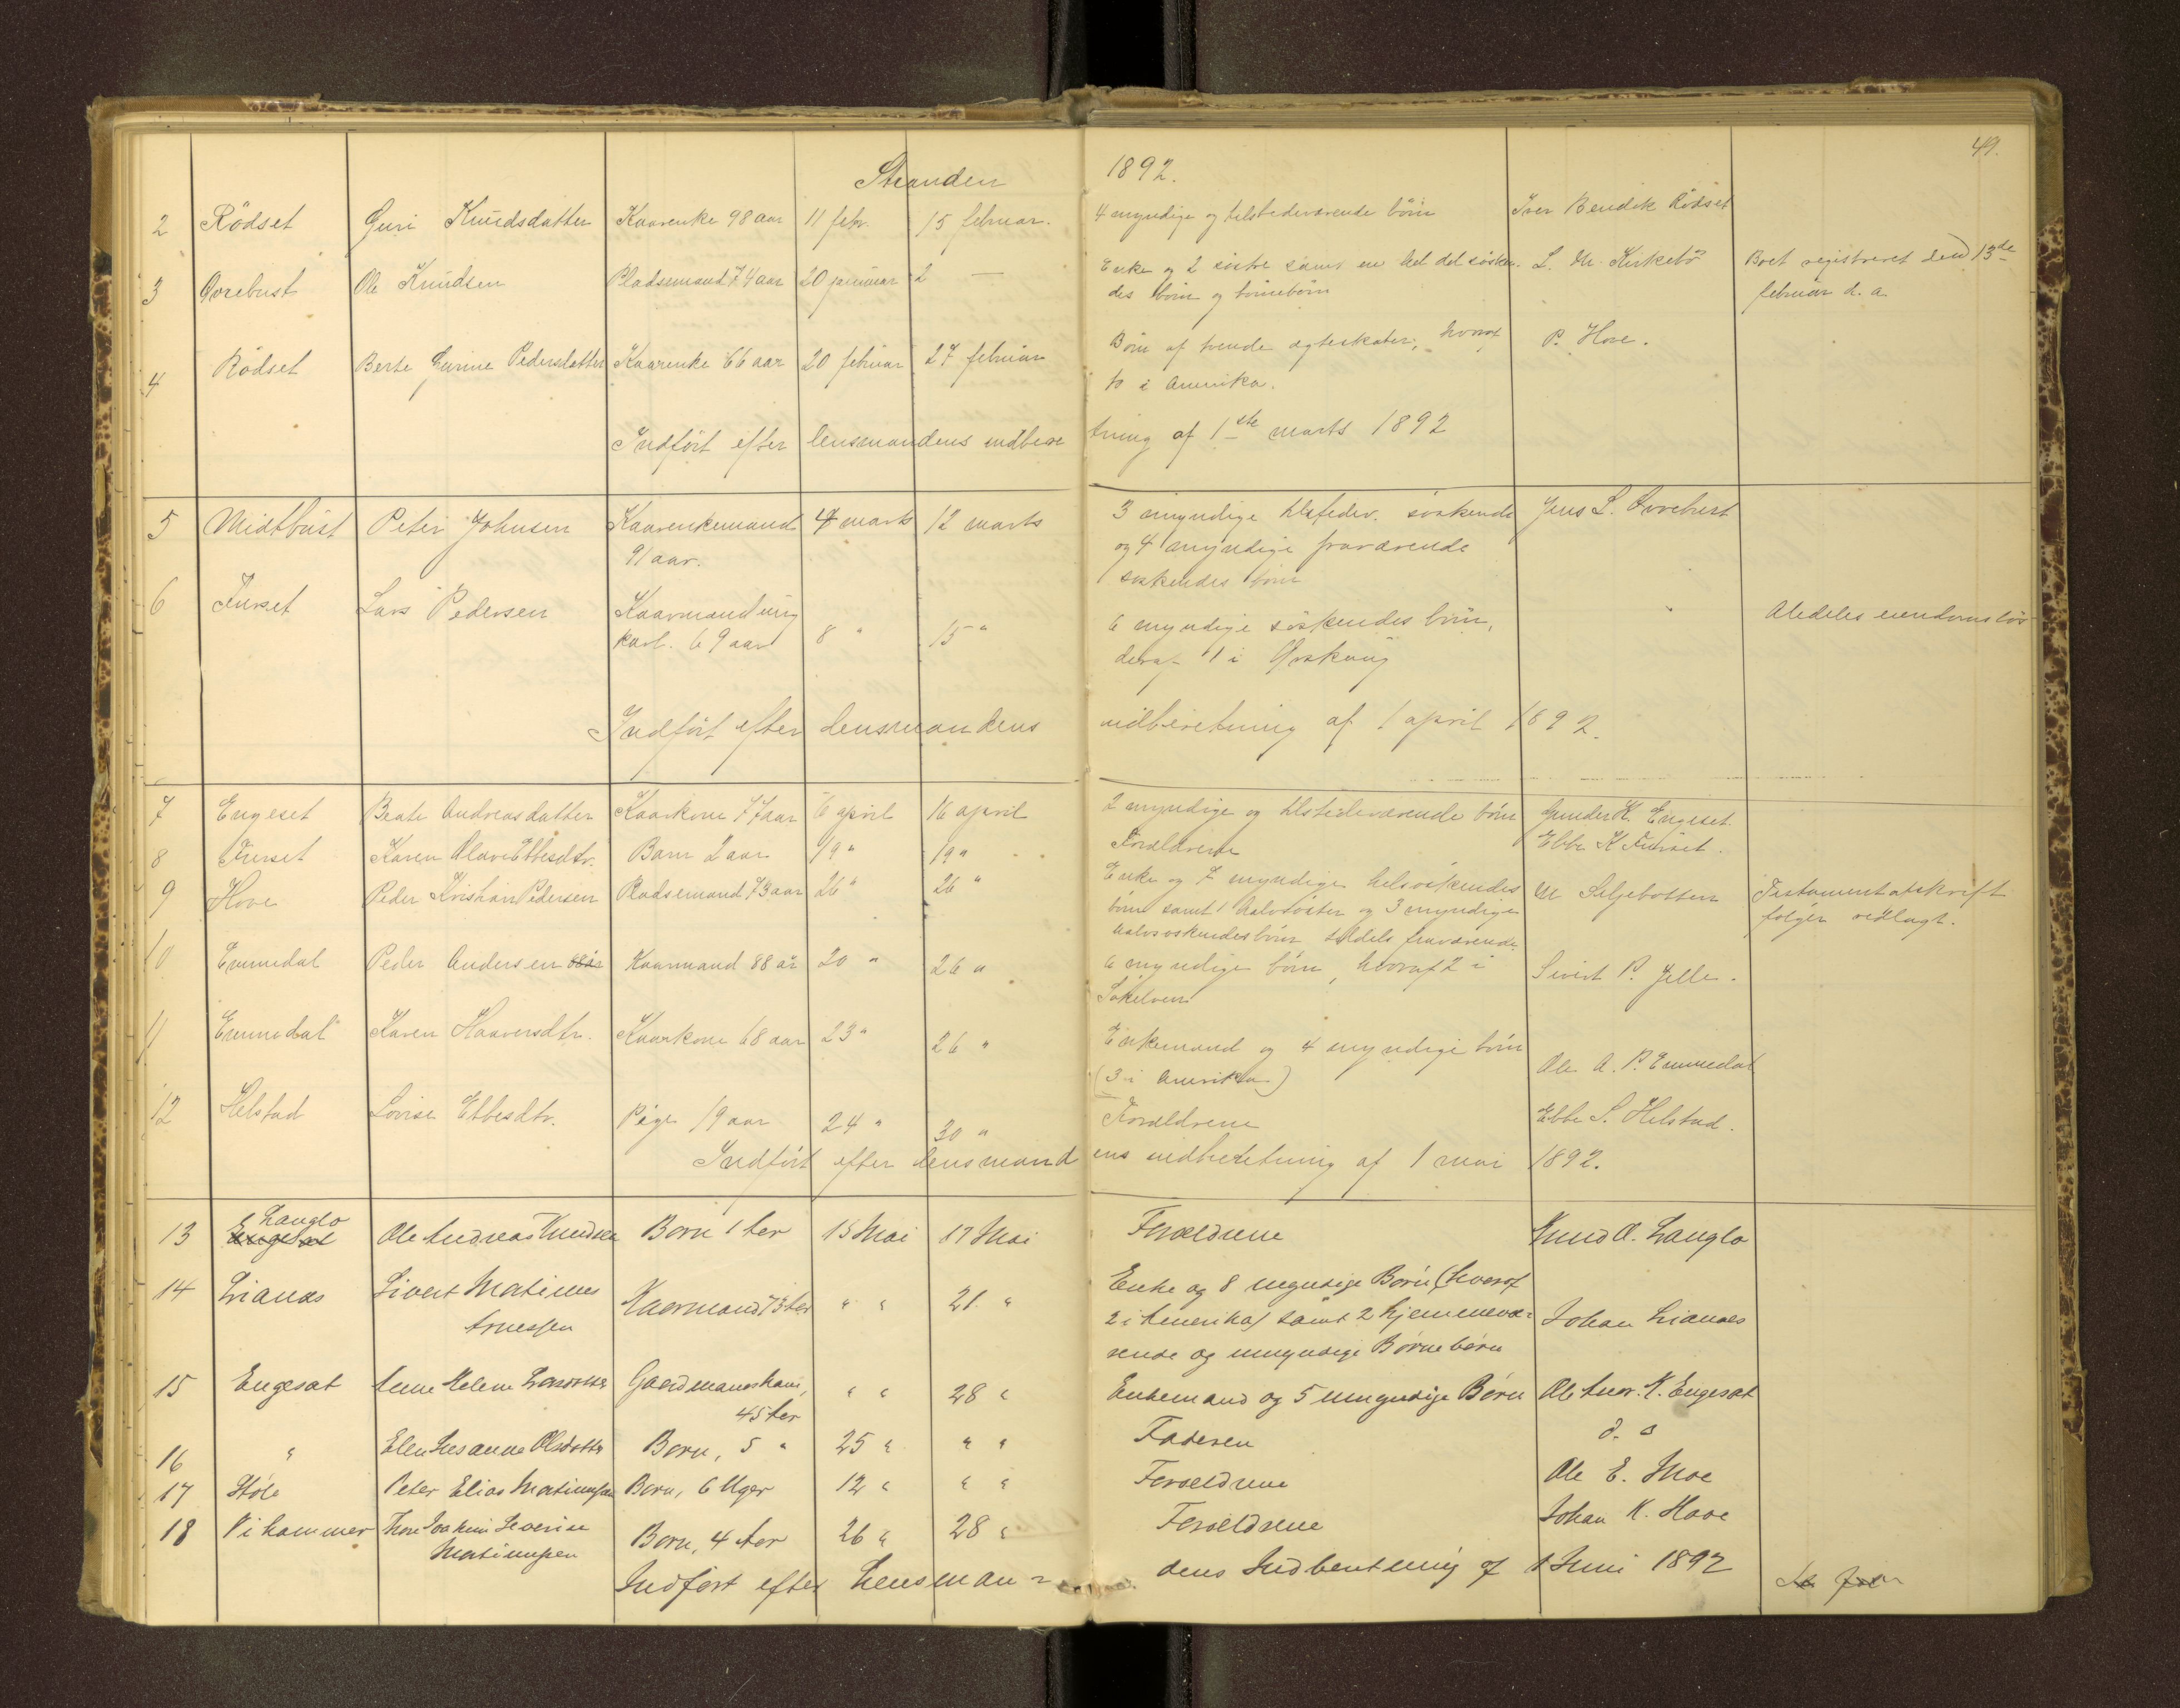 49.
Stranden 1892.
2 Rödset Guri Knudsdatter Kaarenke 98 aar 11 febr. 15 februar. 4 myndige og tilstedeværende börn Iver Bendik Rödset
3 Ovrebust Ole Knudsen Pladsemand 74 aar 20 januar 2 — Enke og 2 söstre samt en hel del sösken- L. M. Kirkebö Boet registreret den 13de
des börn og börnebörn februar d. a.
4 Rödset Berte Gurine Pedersdatter Kaarenke 66 aar 20 februar 27 februar Börn af tvende ægteskaber, hvoraf P. Hove.
to i Amerika.
Indfört efter lensmandens indberetning af 1ste marts 1892
5 Midtbust Peter Johnsen Kaarenkemand 4 marts 12 marts 3 myndige tilstedev. söskende Jens L. Ovrebust
91 aar. og 4 myndige fraværende
söskendes börn
6 Furset Lars Pedersen Kaarmand ung
karl. 69 aar 8 " 15 " 6 myndige söskendes börn, Aldeles eiendomslös
deraf 1 i Örskoug
Indfört efter lensmandens indberetning af 1 april 1892.
7 Engeset Beate Andreasdatter Kaarkone 77 aar 6 april 16 april 2 myndige og tilstedeværende börn Gunder K. Engeset.
8 Furset Karen Olave Ebbesdtr. Barn 2 aar 19 " 19 " Forældrene Ebbe K Furset.
9 Hove Peder Kristian Pedersen Pladsemand 73 aar 26 " 26 " Enke og 7 myndige helsöskendes M Seljebotten Testamentafskrift
börn samt 1 halvsöster og 3 myndige følger vedlagt.
halvsöskendesbörn tildels fraværende.
10 Emmedal Peder Andersen Kaarmand 88 år 20 " 26 " 6 myndige börn, hvoraf 2 i Sivert P. Jelle.
Sökelven
11 Emmedal Karen Haaversdtr. Kaarkone 68 aar 23 " 26 " Enkemand og 4 myndige börn Ole A. P. Emmedal
(3 i Amerika)
12 Helstad Lovise Ebbesdtr. Pige 19 aar 24 " 30 " Forældrene Ebbe S. Helstad.
Indfört efter lensmandens indberetning af 1 mai 1892.
13 Langlo Ole Andreas Knudsen Barn 1 Aar 15 Mai 17 Mai Forældrene Knud O. Langlo
14 Lianæs Sivert Matinus Kaarmand 73 Aar " " 21 " Enke og 8 myndige Børn (hvoraf
Arnessen 2 i Amerika) samt 2 hjemmevæ= Johan Lianæs
rende og umyndige Børnebørn
15 Engesæt Anne Helene Gaardmandskone, " " 28 " Enkemand og 5 umyndige Børn Ole Andr. K. Engesæt
45 Aar
16 " Elen Susanne Olsdatter Barn, 5 " 25 " " " Faderen d. o
17 Høle Peter Elias Matiussen Barn, 6 Uger 12 " " " Forældrene Ole E. Moe
18 Vikammer Thore Joakim Severin Barn, 4 Aar 26 " 28 " Forældrene Johan K. Hove
Indført efter Lensman=dens Indberetning af 1 Juni 1892